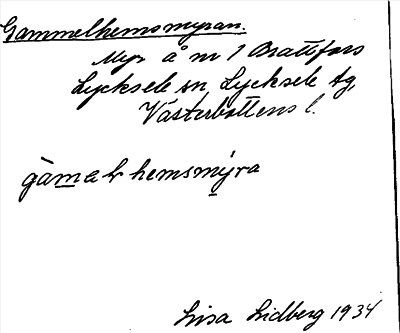 Gammelhemsmyran.
Myr å nr 1 Brattfors
Lycksele sn, Lycksele tg,
Västerbottens l.
gàmalhemsmýra
Lisa Lidberg 1934